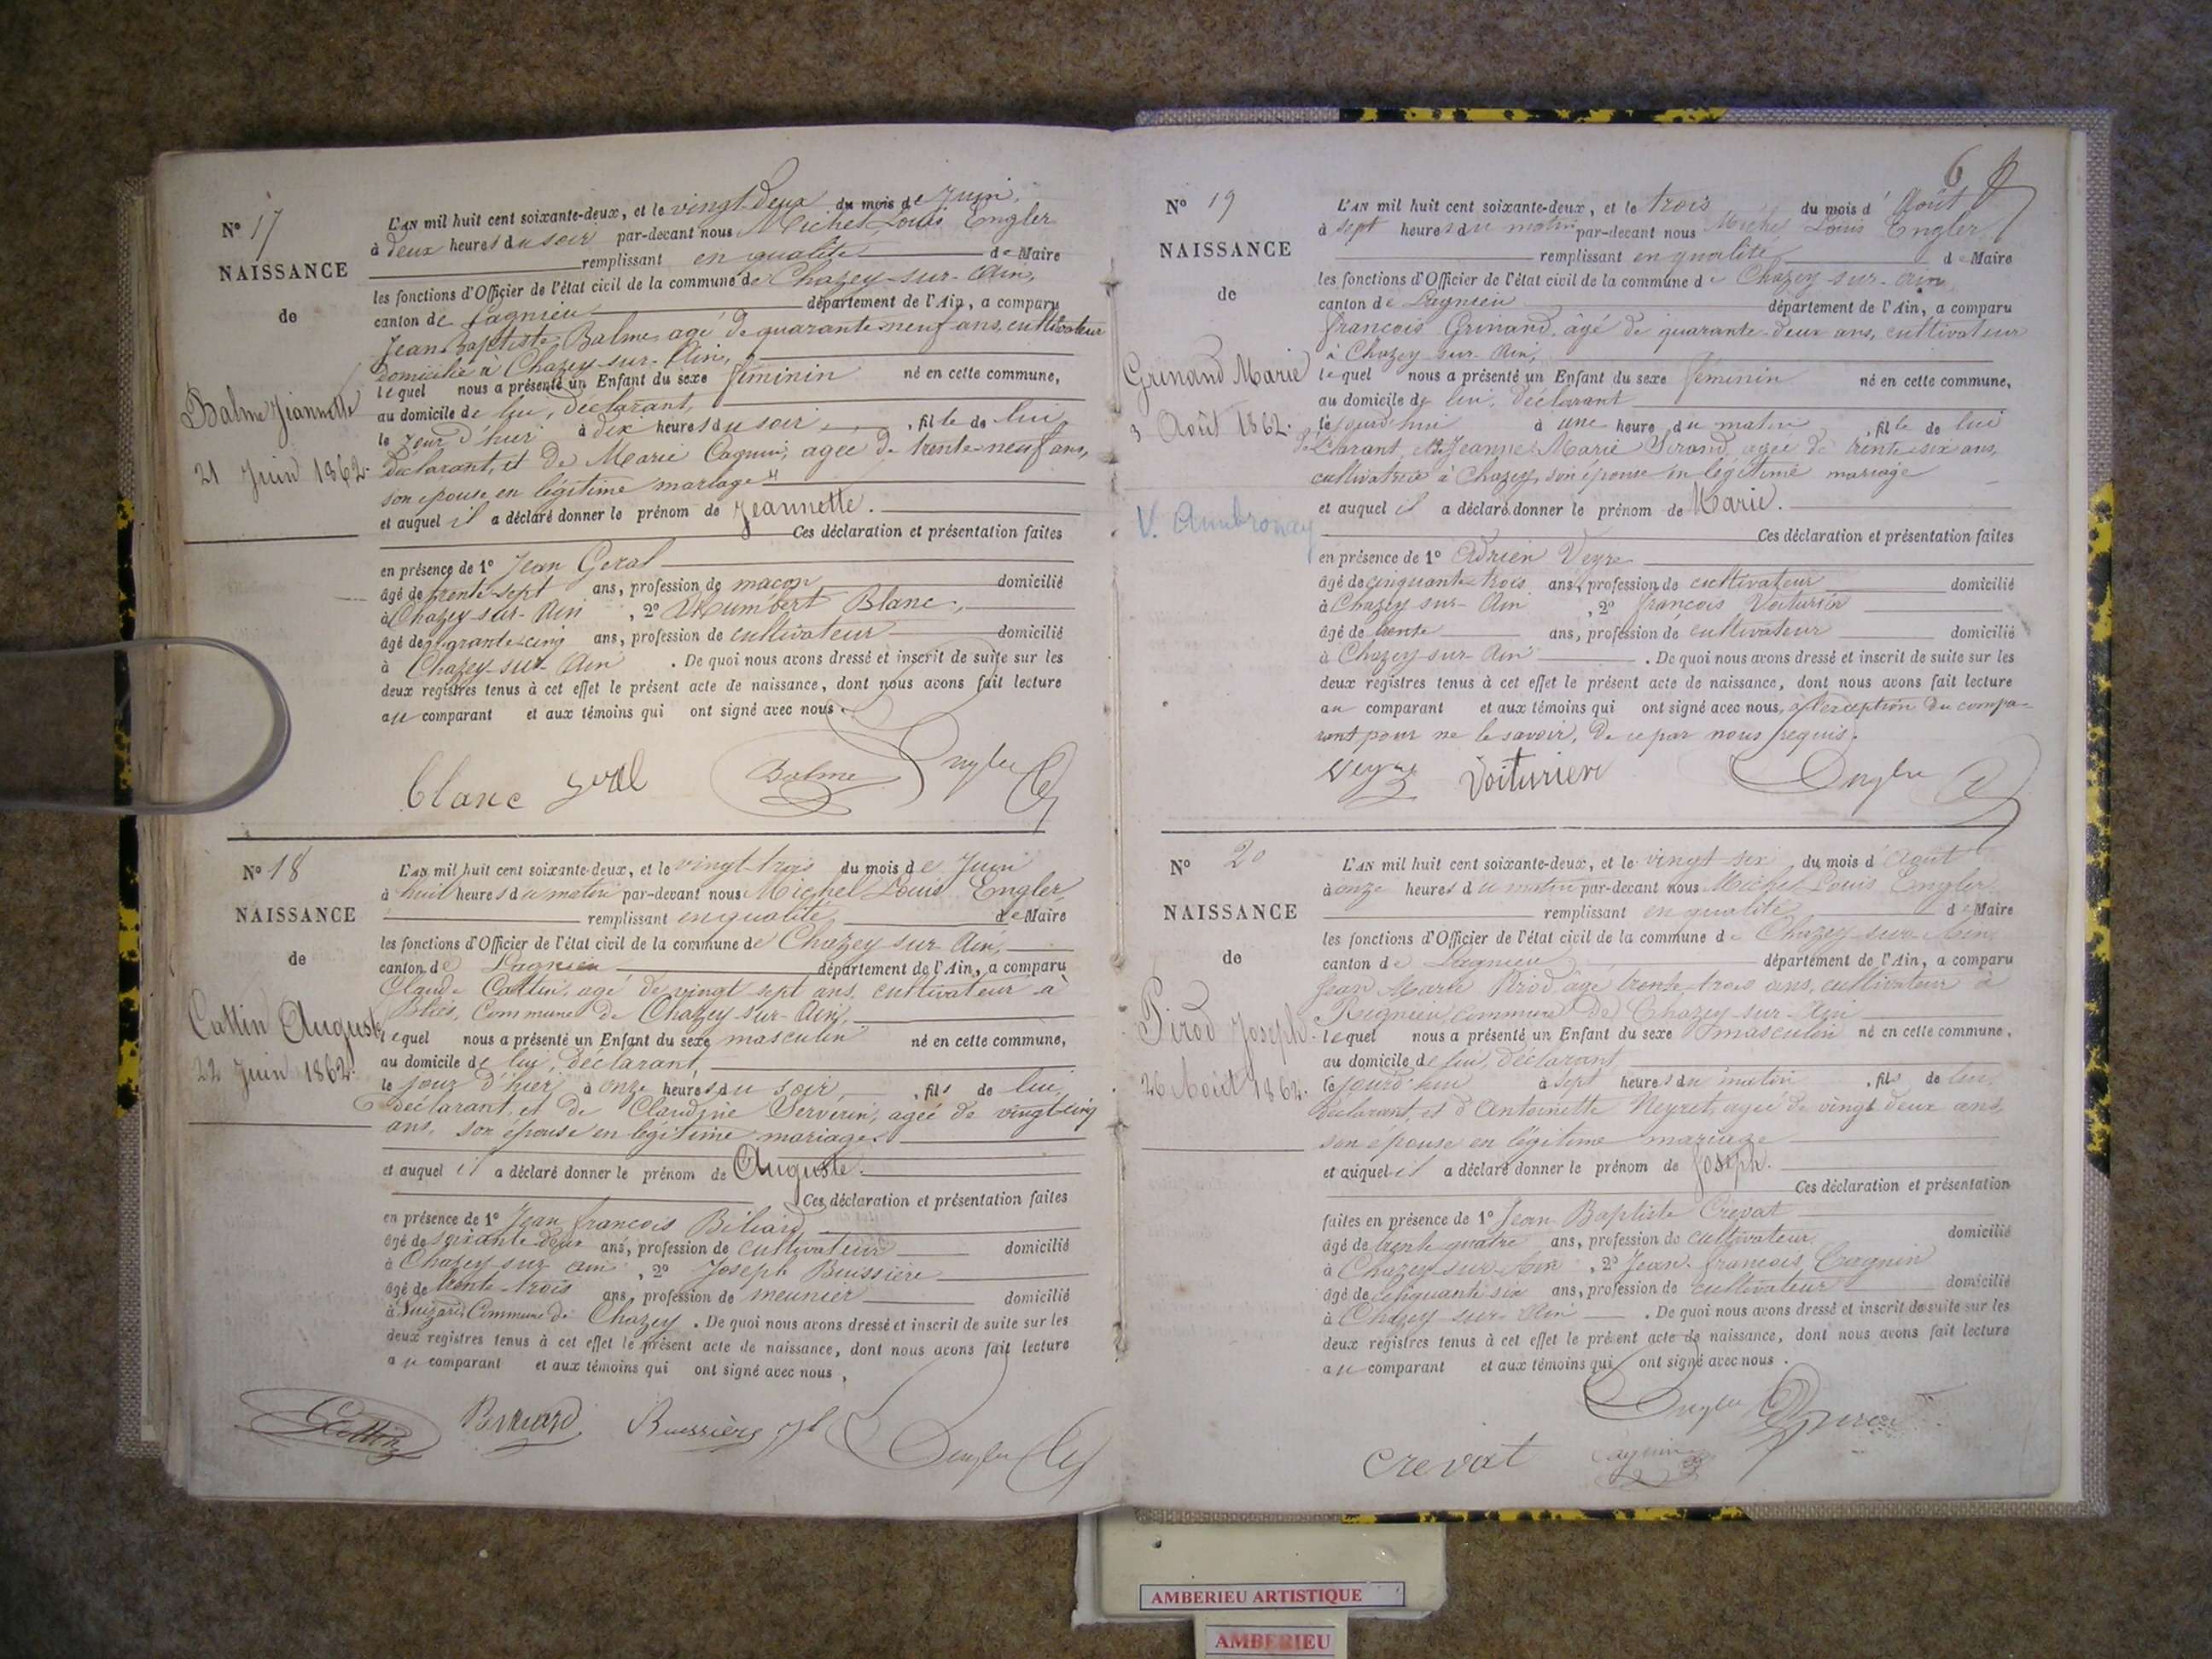 N° 17
NAISSANCE
de
Balme Jeannette
21 Juin 1862.
L'AN mil huit cent soixante-deux, et le vingt-deux du mois de Juin,
à deux heures du soir par-devant nous Michel Louis Engler
remplissant en qualité de Maire
les fonctions d'Officier de l'état civil de la commune de Chazey-sur-Ain,
canton de Lagnieu département de l'Ain, a comparu
Jean-Baptiste Balme, agé de quarante-neuf ans, cultivateur
domicilié à Chazey-sur-Ain,
lequel nous a présenté un Enfant du sexe féminin né en cette commune,
au domicile de lui, déclarant,
le jour d'hier à dix heures du soir, fille de lui
déclarant, et de Marie Cagnin, agée de trente-neuf ans,
son épouse en légitime mariage
et auquel il a déclaré donner le prénom de Jeannette.
Ces déclaration et présentation faites
en présence de 1° Jean Geral
âgé de trente-sept ans, profession de maçon domicilié
à Chazey-sur-Ain, 2° Humbert Blanc,
âgé de quarante-cinq ans, profession de cultivateur domicilié
à Chazey-sur-Ain. De quoi nous avons dressé et inscrit de suite sur les
deux registres tenus à cet effet le présent acte de naissance, dont nous avons fait lecture
au comparant et aux témoins qui ont signé avec nous.
Blanc Geral Balme Engler
N° 18
NAISSANCE
de
Cattin Auguste
22 Juin 1862.
L'AN mil huit cent soixante-deux, et le vingt-trois du mois de Juin
à huit heures du matin par-devant nous Michel Louis Engler
remplissant en qualité de Maire
les fonctions d'Officier de l'état civil de la commune de Chazey-sur-Ain,
canton de Lagnieu département de l'Ain, a comparu
Claude Cattin, agé de vingt-sept ans, cultivateur à
Bliés, Commune de Chazey-sur-Ain,
lequel nous a présenté un Enfant du sexe masculin né en cette commune,
au domicile de lui, déclarant,
le jour d'hier à onze heures du soir, fils de lui
déclarant, et de Claudine Serverin, agée de vingt-cinq
ans, son épouse en légitime mariage.
et auquel il a déclaré donner le prénom de Auguste.
Ces déclaration et présentation faites
en présence de 1° Jean François Biliard
âgé de soixante-deux ans, profession de cultivateur domicilié
à Chazey-sur-Ain, 2° Joseph Buissière
âgé de trente-trois ans, profession de meunier domicilié
à Luizard, Commune de Chazey. De quoi nous avons dressé et inscrit de suite sur les
deux registres tenus à cet effet le présent acte de naissance, dont nous avons fait lecture
au comparant et aux témoins qui ont signé avec nous,
Cattin Buissière Engler
6
N° 19
NAISSANCE
de
Grinand Marie
3 Août 1862.
V. Ambronay
L'AN mil huit cent soixante-deux, et le trois du mois d'Août
à sept heures du matin par-devant nous Michel Louis Engler
remplissant en qualité de Maire
les fonctions d'Officier de l'état civil de la commune de Chazey-sur-Ain
canton de Lagnieu département de l'Ain, a comparu
François Grinand, âgé de quarante-deux ans, cultivateur
à Chazey-sur-Ain,
lequel nous a présenté un Enfant du sexe féminin né en cette commune,
au domicile de lui, déclarant
le jourd'hui à une heure du matin, fille de lui
déclarant, et de Jeanne Marie Sirand, agée de trente-six ans,
cultivatrice à Chazey, son épouse en légitime mariage
et auquel il a déclaré donner le prénom de Marie.
Ces déclaration et présentation faites
en présence de 1° Adrien Veyre
âgé de cinquante-trois ans, profession de cultivateur domicilié
à Chazey-sur-Ain, 2° François Voiturier
âgé de trente ans, profession de cultivateur domicilié
à Chazey-sur-Ain. De quoi nous avons dressé et inscrit de suite sur les
deux registres tenus à cet effet le présent acte de naissance, dont nous avons fait lecture
au comparant et aux témoins qui ont signé avec nous, à l'exception du compa-
rant pour ne le savoir, de ce par nous requis.
Veyre Voiturier Engler
N° 20
NAISSANCE
de
Pirod Joseph.
26 Août 1862.
L'AN mil huit cent soixante-deux, et le vingt-six du mois d'Août
à onze heures du matin par-devant nous Michel Louis Engler
remplissant en qualité de Maire
les fonctions d'Officier de l'état civil de la commune de Chazey-sur-Ain
canton de Lagnieu département de l'Ain, a comparu
Jean Marie Pirod âgé trente-trois ans, cultivateur à
Rignieu, commune de Chazey-sur-Ain
lequel nous a présenté un Enfant du sexe masculin né en cette commune,
au domicile de lui, déclarant
le jourd'hui à sept heures du matin, fils de lui
déclarant, et d'Antoinette Neyret, agée de vingt-deux ans,
son épouse en légitime mariage
et auquel il a déclaré donner le prénom de Joseph.
Ces déclaration et présentation
faites en présence de 1° Jean Baptiste Crevat
âgé de trente-quatre ans, profession de cultivateur domicilié
à Chazey-sur-Ain, 2° Jean-François Cagnin
âgé de cinquante-six ans, profession de cultivateur domicilié
à Chazey-sur-Ain. De quoi nous avons dressé et inscrit de suite sur les
deux registres tenus à cet effet le présent acte de naissance, dont nous avons fait lecture
au comparant et aux témoins qui ont signé avec nous.
Engler
Crevat Cagnin
AMBERIEU ARTISTIQUE
AMBERIEU